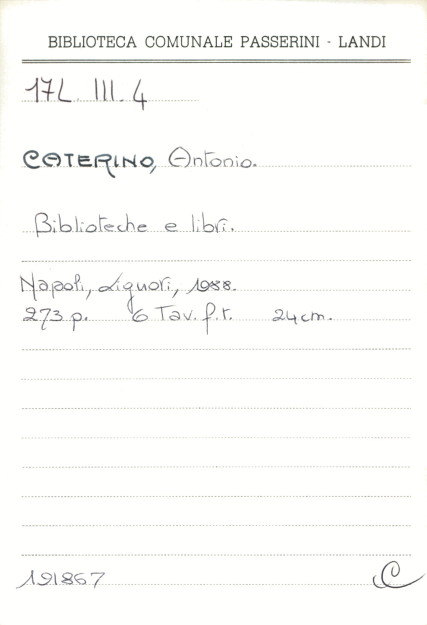 BIBLIOTECA COMUNALE PASSERINI - LANDI
17L. III. 4
CATERINO, Antonio.
Biblioteche e libri.
Napoli, Liguori, 1988.
273 p. 6 Tav. f.t. 24 cm.
191867 C